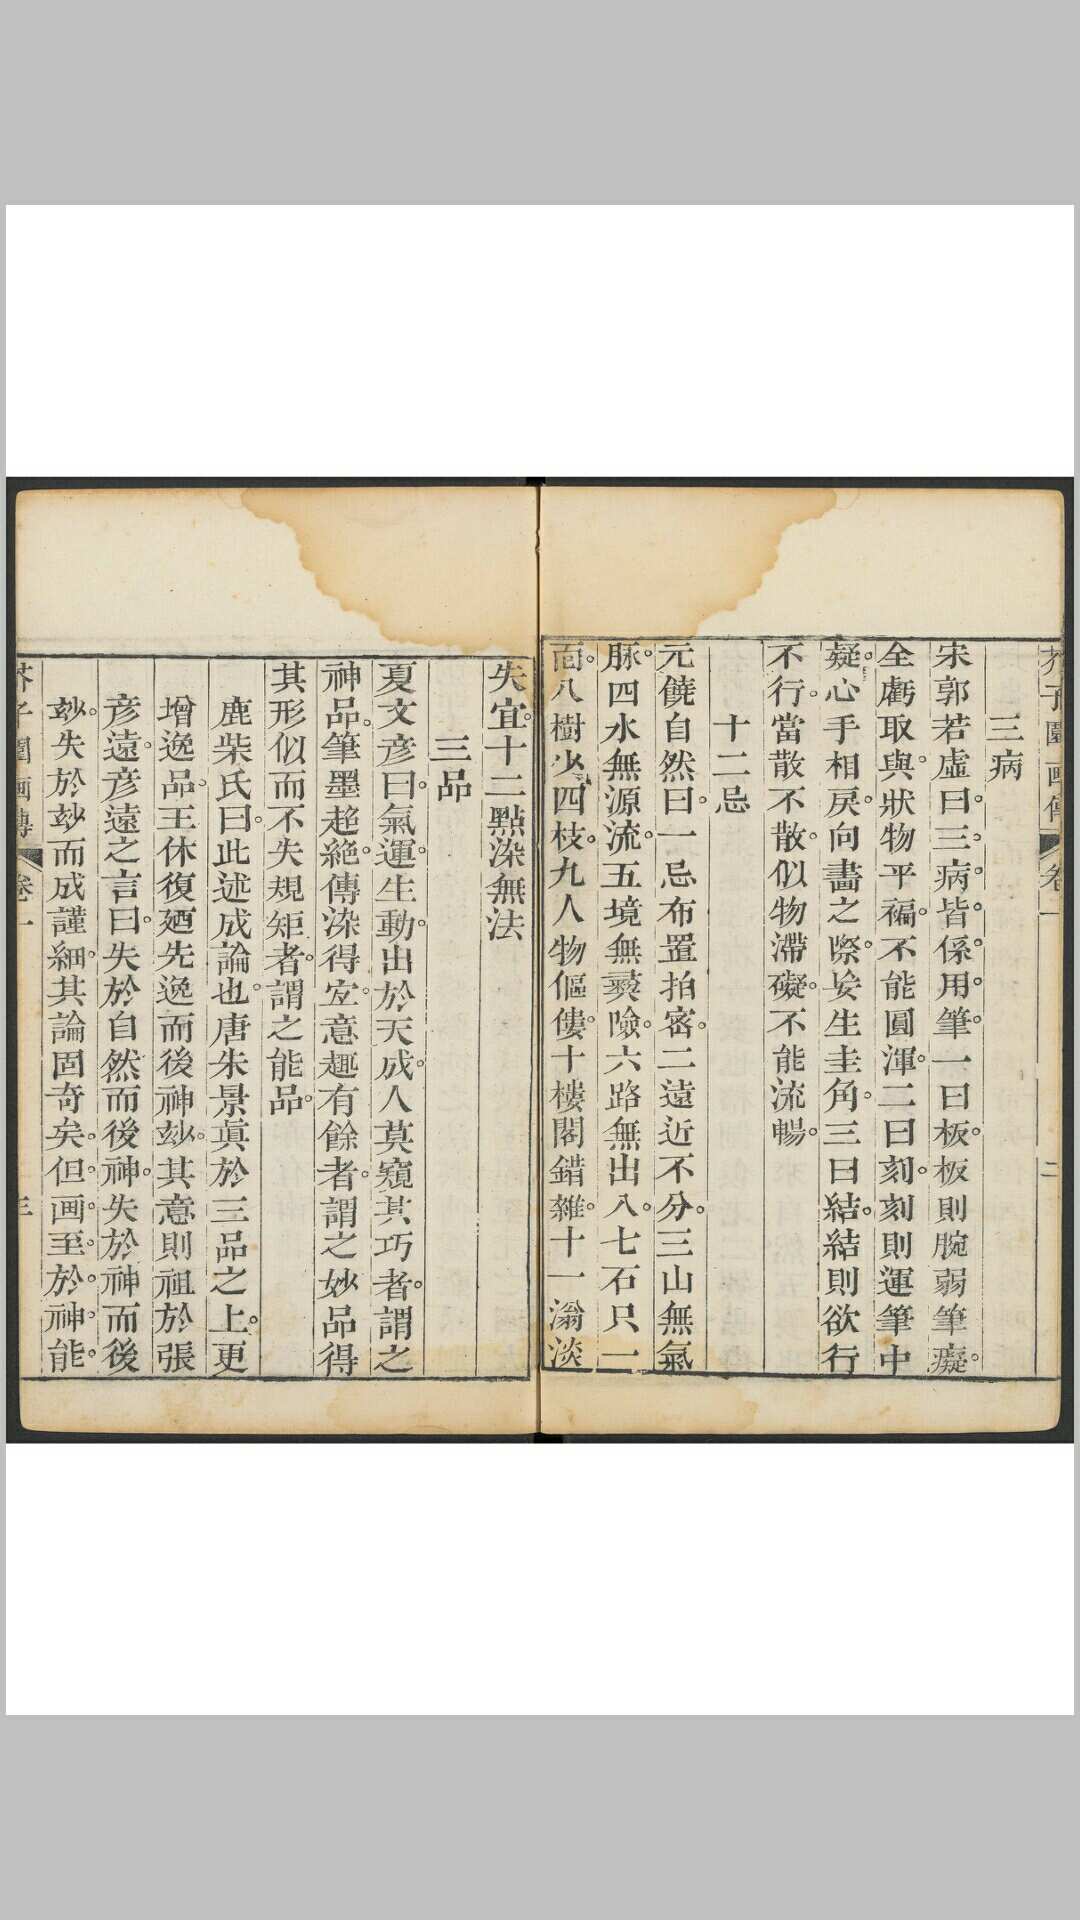 芥子園画傳 卷一 二
三病
宋郭若虛曰。三病。皆係用筆。一曰板。板則腕弱筆癡。
全虧取與。狀物平褊。不能圓渾。二曰刻。刻則運筆中
疑。心手相戾。向畫之際。妄生圭角。三曰結。結則欲行
不行。當散不散。似物滯礙。不能流暢。
十二忌
元饒自然曰。一忌布置拍密。二遠近不分。三山無氣
脉。四水無源流。五境無夷險。六路無出入。七石只一
面。八樹少四枝。九人物傴僂。十樓閣錯雜。十一滃淡
失宜。十二點染無法
三品
夏文彦曰。氣運生動。出於天成。人莫窺其巧者。謂之
神品。筆墨超絶。傳染得宜。意趣有餘者。謂之妙品。得
其形似而不失規矩者。謂之能品。
鹿柴氏曰。此述成論也。唐朱景眞於三品之上。更
增逸品。王休復廼先逸而後神玅。其意則祖於張
彦遠。彦遠之言曰。失於自然而後神。失於神而後
玅。失於玅而成謹細。其論固奇矣。但画至於神能。
芥子園画傳 卷一 三